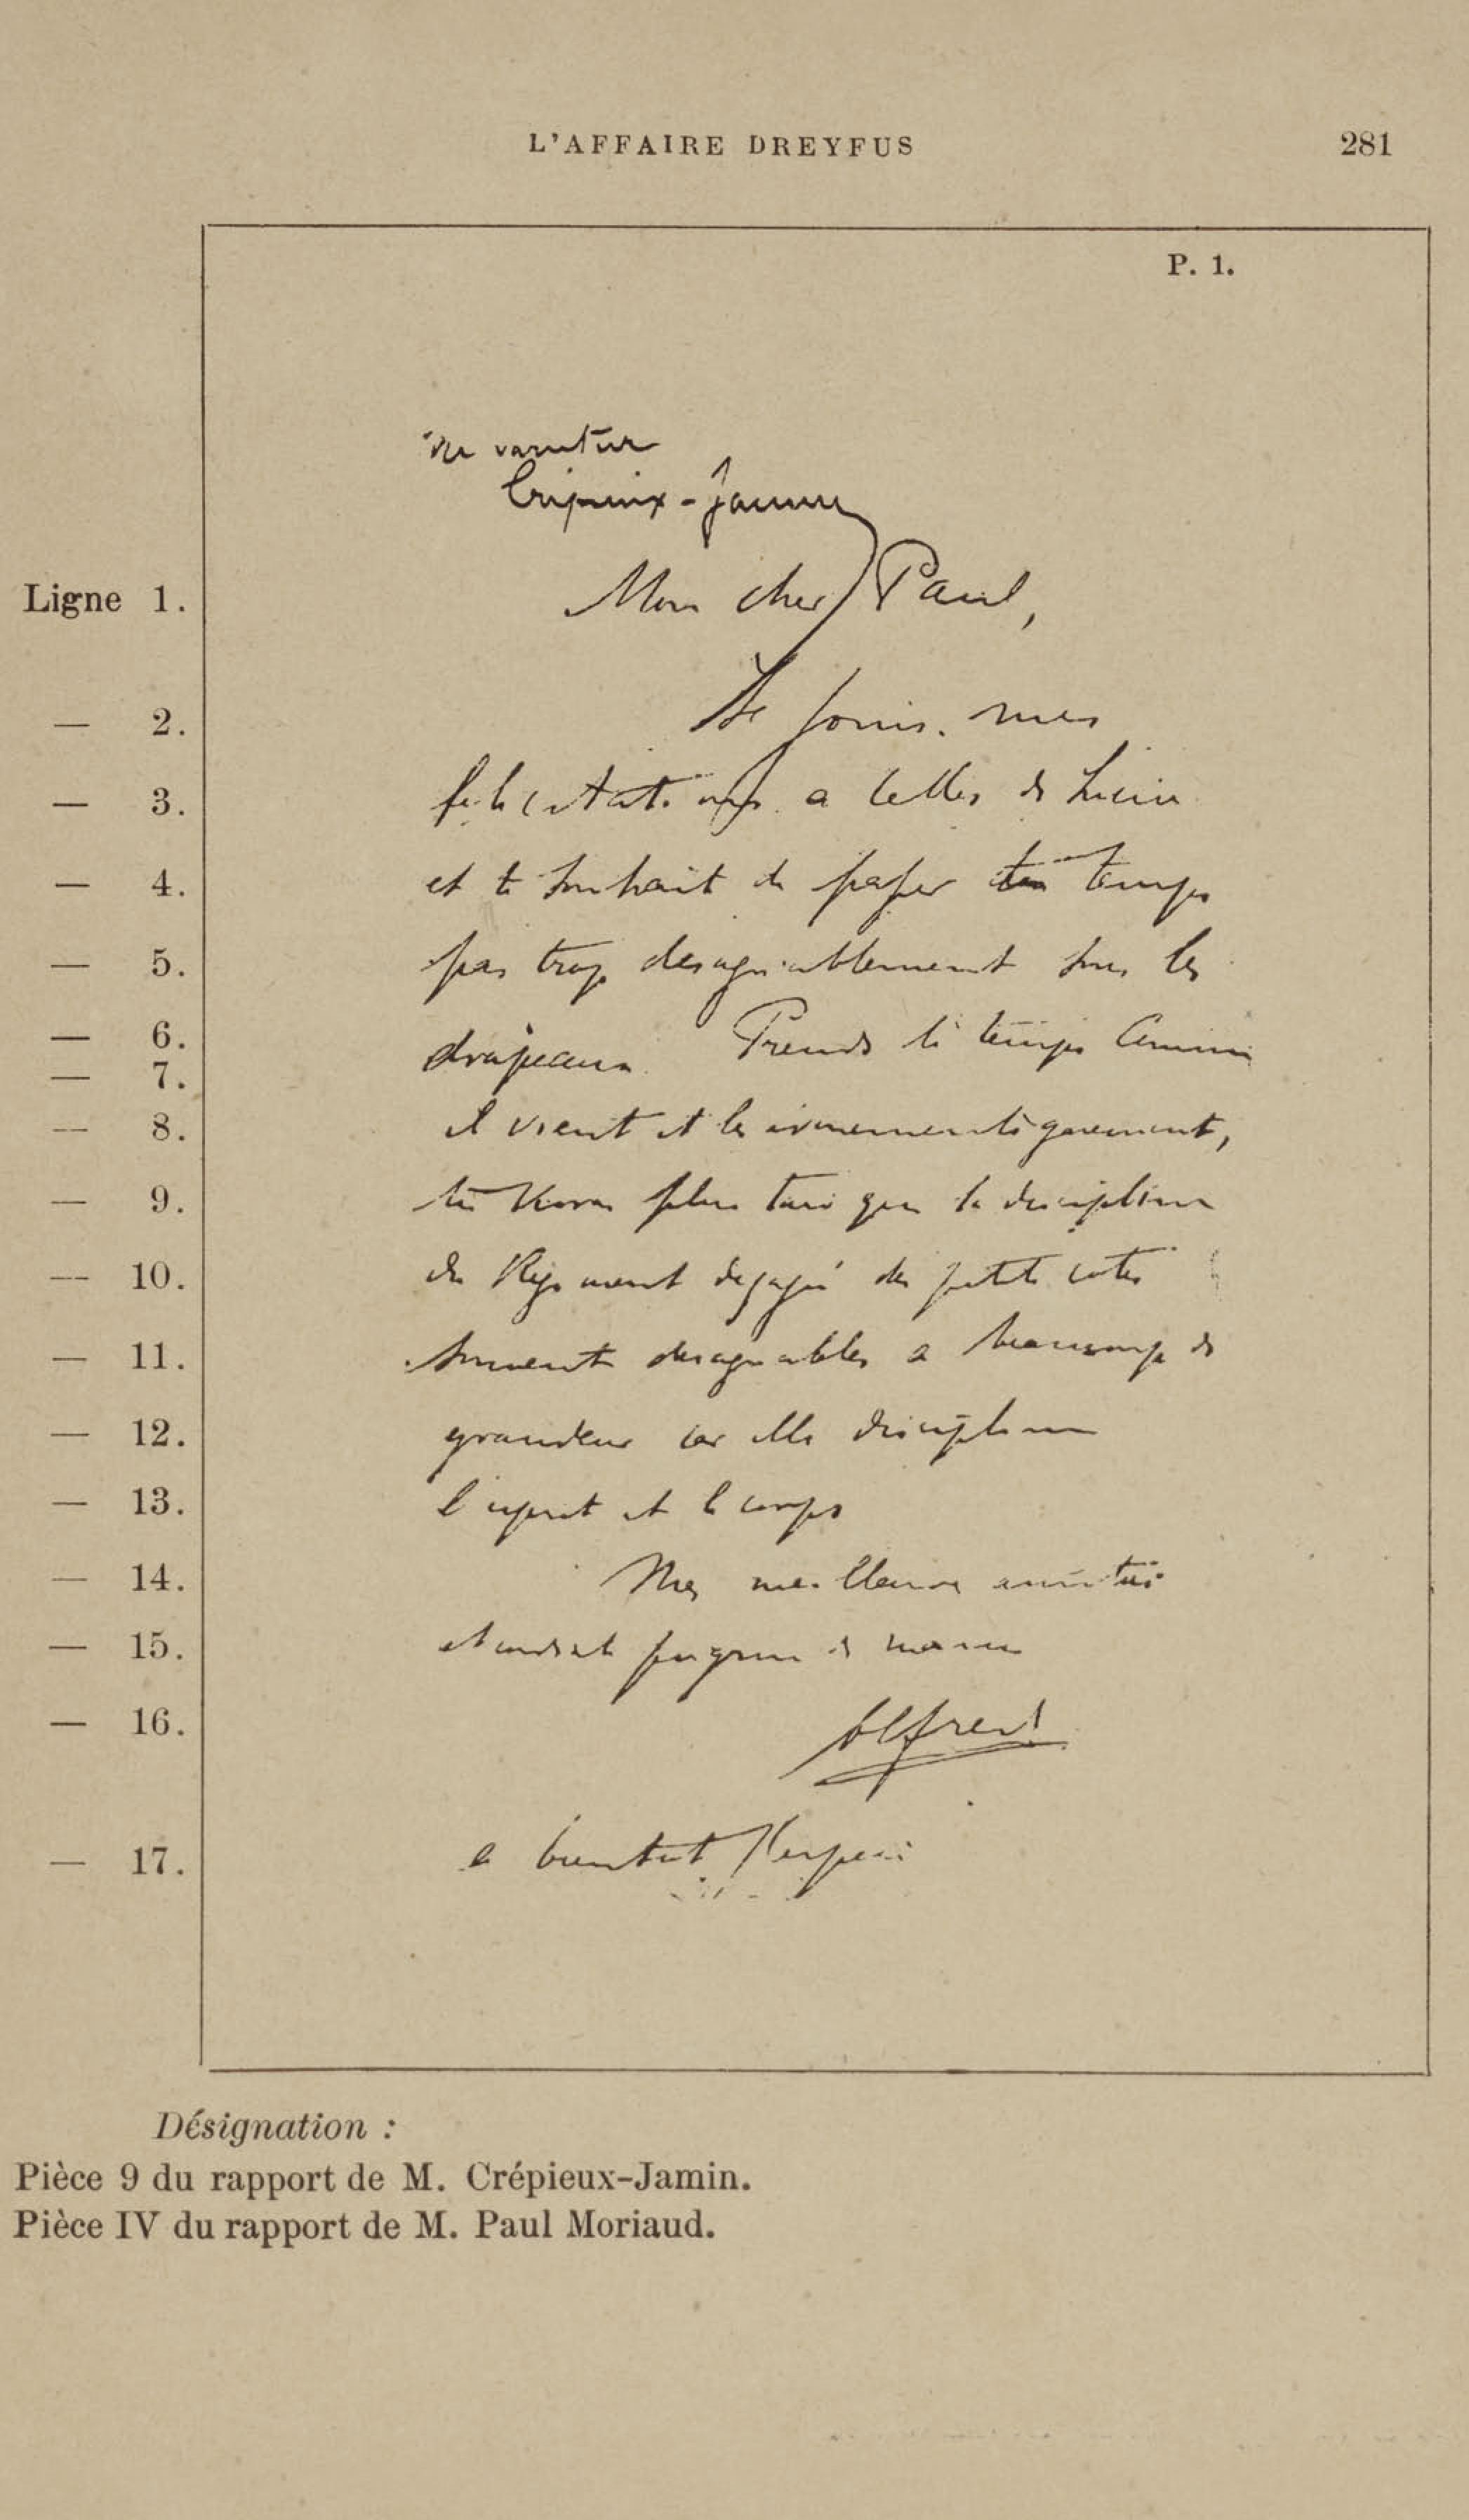 L'AFFAIRE DREYFUS 281
P. 1.
ne varietur
Crépieux-Jamin
Ligne 1. Mon cher Paul,
— 2. Je joins mes
— 3. felicitations a celles de Lucie
— 4. et te souhait de passer ton temps
— 5. pas trop desagreablement sous les
— 6. drapeaux. Prends le temps comme
— 7.
— 8. il vient et les evenements
— 9. tu verras plus tard que la discipline
— 10. du Regiment degagée des petits cotes
— 11. souvent desagreables a beaucoup de
— 12. grandeur car elle discipline
— 13. l'esprit et le corps
— 14. Mes meilleures amitiés
— 15. et
— 16. Alfred
— 17. a bientot j'espere
Désignation :
Pièce 9 du rapport de M. Crépieux-Jamin.
Pièce IV du rapport de M. Paul Moriaud.